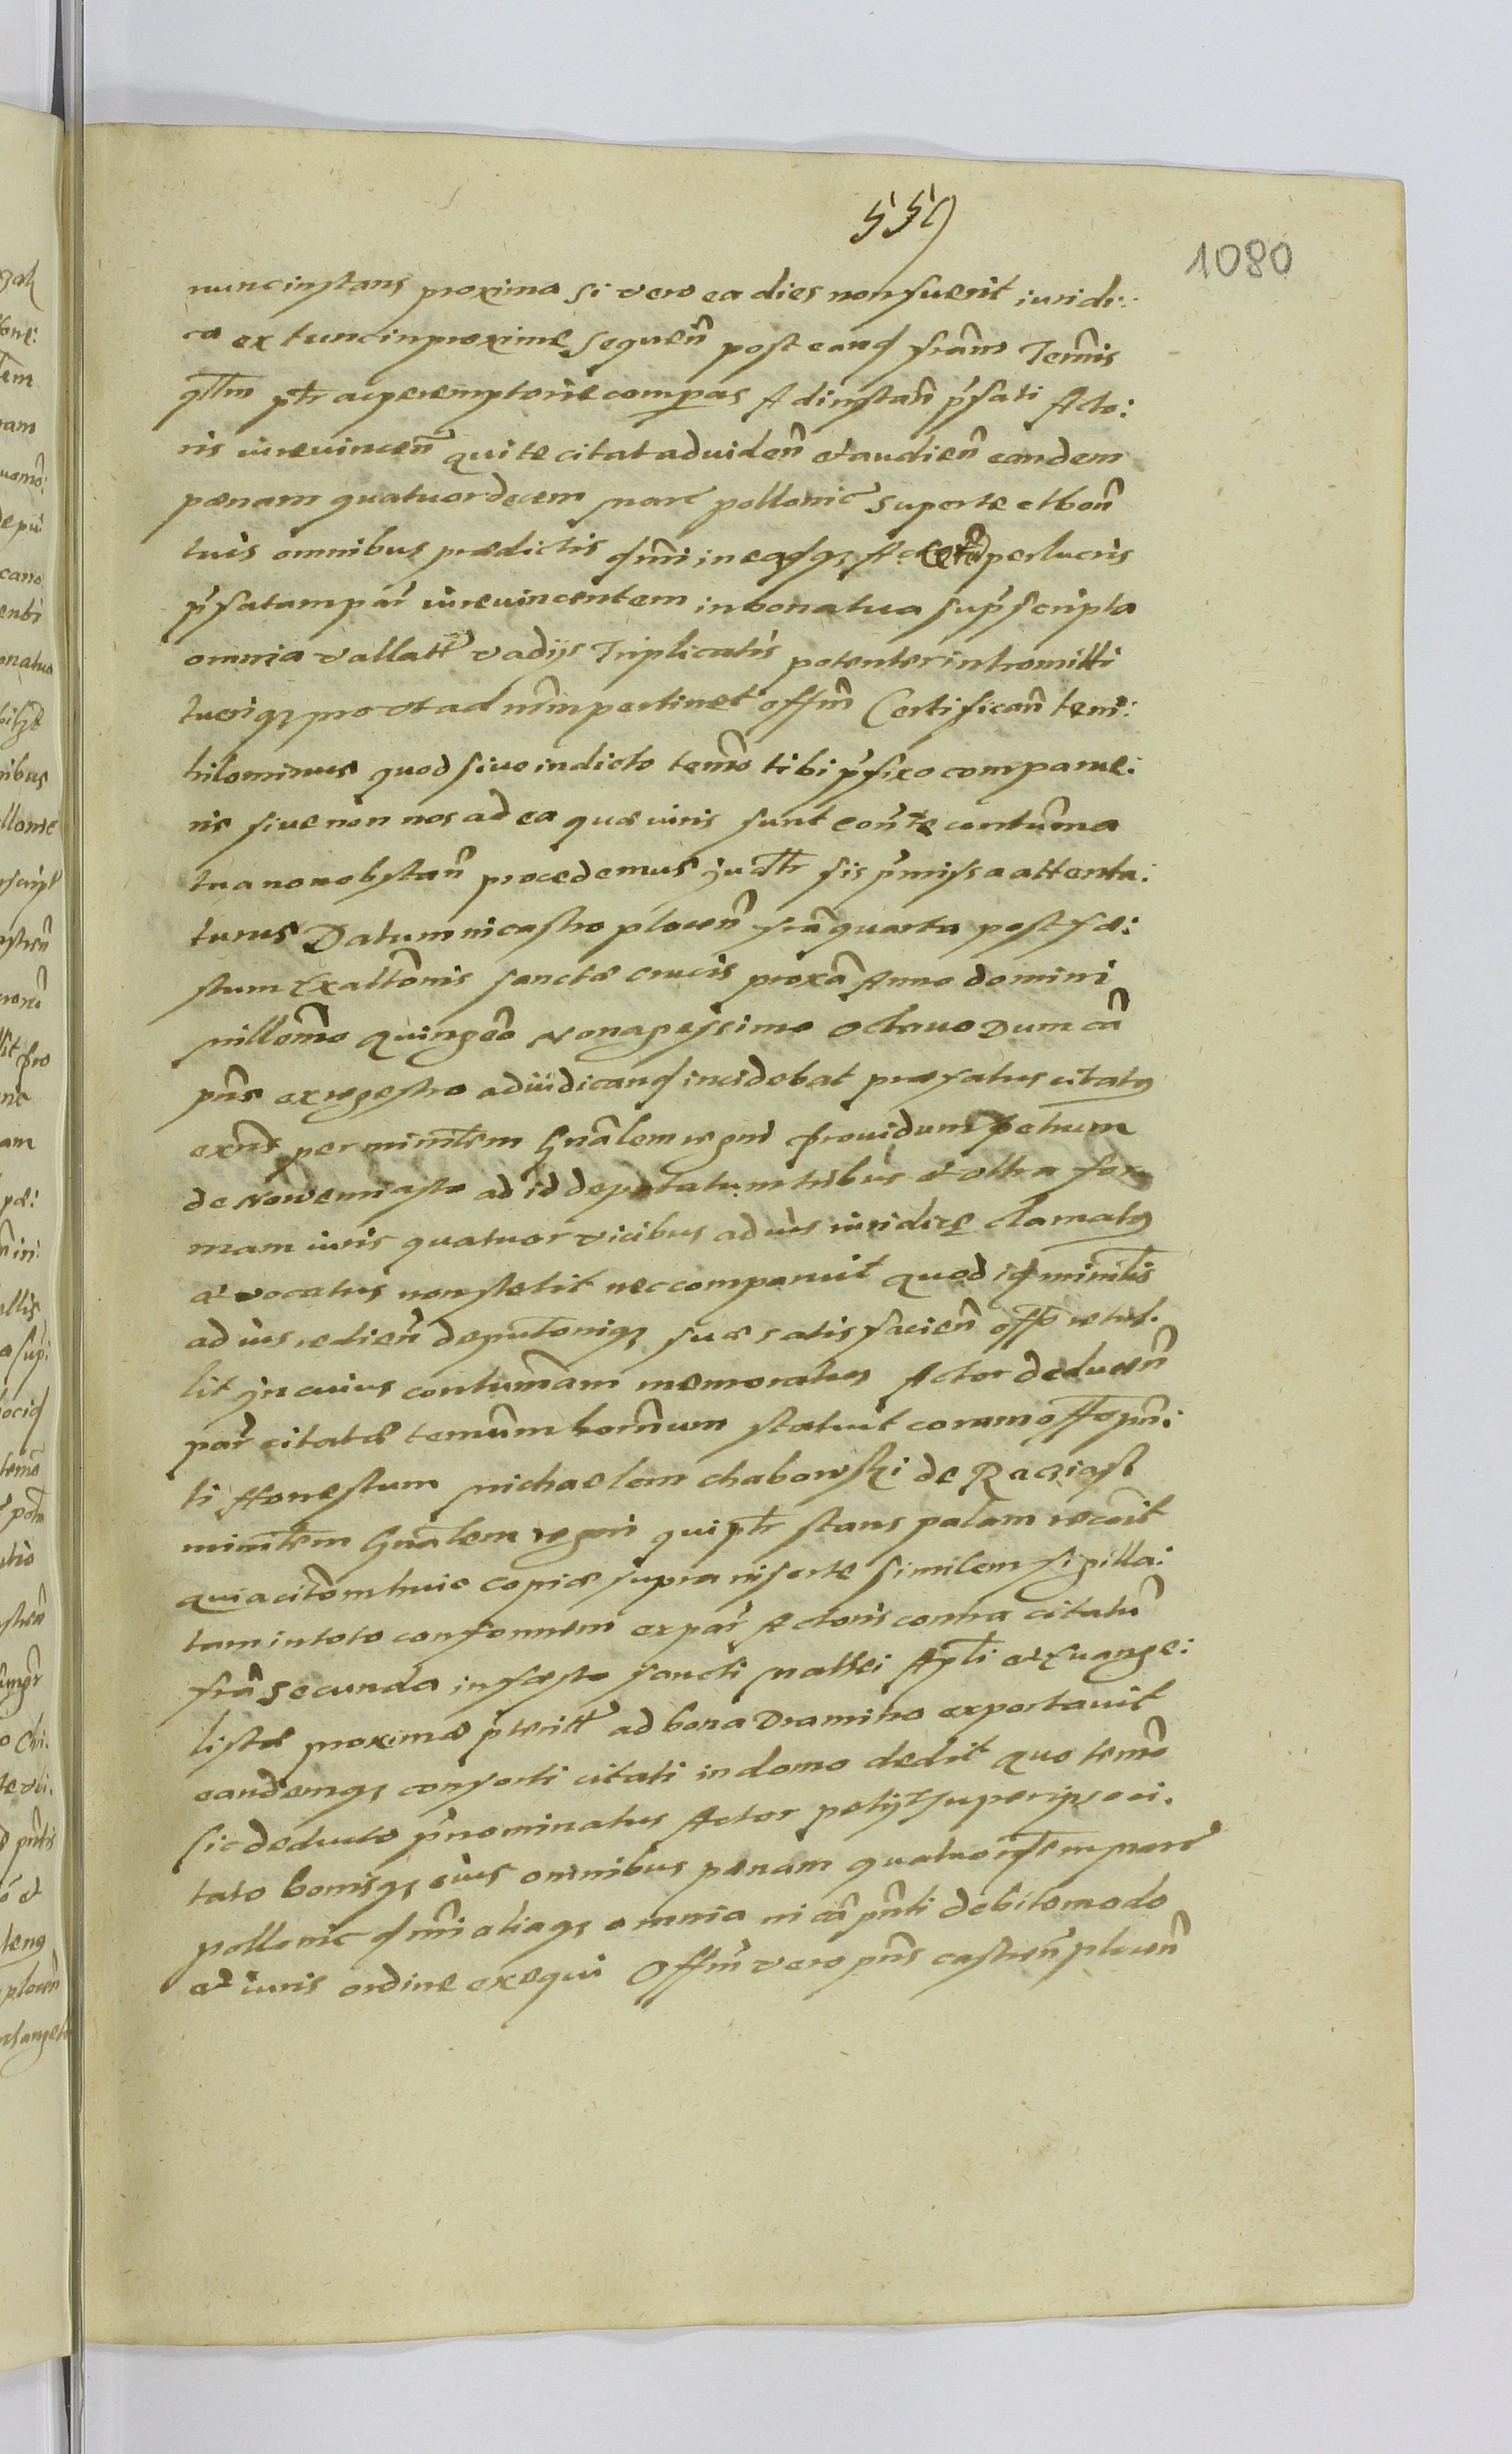 559
1080
nunc instans proxima si vero ea dies non fuerit iuridi:
ca ex tunc in proxime sequen̄ post eand feriam Termis
ptr ac peremptorie comparas Ad instan̄ p̄fati Acto:
ris iurevincen̄ qui te citat ad viden̄ et audien̄ eandem
pœnam quatuordecem marc pollonic super te et bon̄
tuis omnibus prædictis per lucris
p̄fatam par̄ iurevincentem in bona tua sup̄scripta
omnia vallatt vadijs Triplicatis potenter intromitti
tueriq prout ad nr̄m pertinet offm̄ Certifican̄ te ni:
hilominus quod siue in dicto term̄o tibi p̄fixo comparue:
ris siue non nos ad ea quæ iuris sunt contuma
tua non obstan̄ procedemus Judtr sis p̄missa attenta:
turus Datum in castro plocen̄ fr̄a quarta post fæ:
stum Exaltōnis sanctæ crucis proxā Anno domini
millemo quingēo Nonagessimo octauo Dum cā
pn̄s ex regestro adiudicand incidebat præfatus citatq
exn̄s per minr̄lem Gnālem regni prouidum Petrum
de Nowemiasto ad id deputatum tribus et vltra for
mam iuris quatuor vicibus ad ius iuridice clamatq
et vocatus non stetit nec comparuit quod id minrl̄is
ad ius redien̄ deputōniq suæ satisfacien̄ offo retul.
lit Jn cuius contumām memoratus Actor deducen̄
par̄ citatæ term̄um bormum statuit coram offo pn̄:
ti Honestum Michaelem chabowski de Raciąsz
minrl̄em Gnālem regni qui ptr stans palam recoīt
quia citom̄ huic copiæ supra inserte similem sigilla:
tam in toto conformem ex par̄ Actoris contra citatū
fr̄a secunda in fæsto sancti Matthei Apl̄i et Euange:
listæ proximæ p̄teritt ad bona Dramino exportauit
eandemq consorti citati in domo dedit quo term̄o
sic deducto p̄nominatus Actor petijt super ipso ci.
tato bonisq eius omnibus pœnam
pollonic aliaq omnia in cā pn̄ti debito modo
et iuris ordine exequi Offm̄ vero pn̄s castren̄ plocen̄